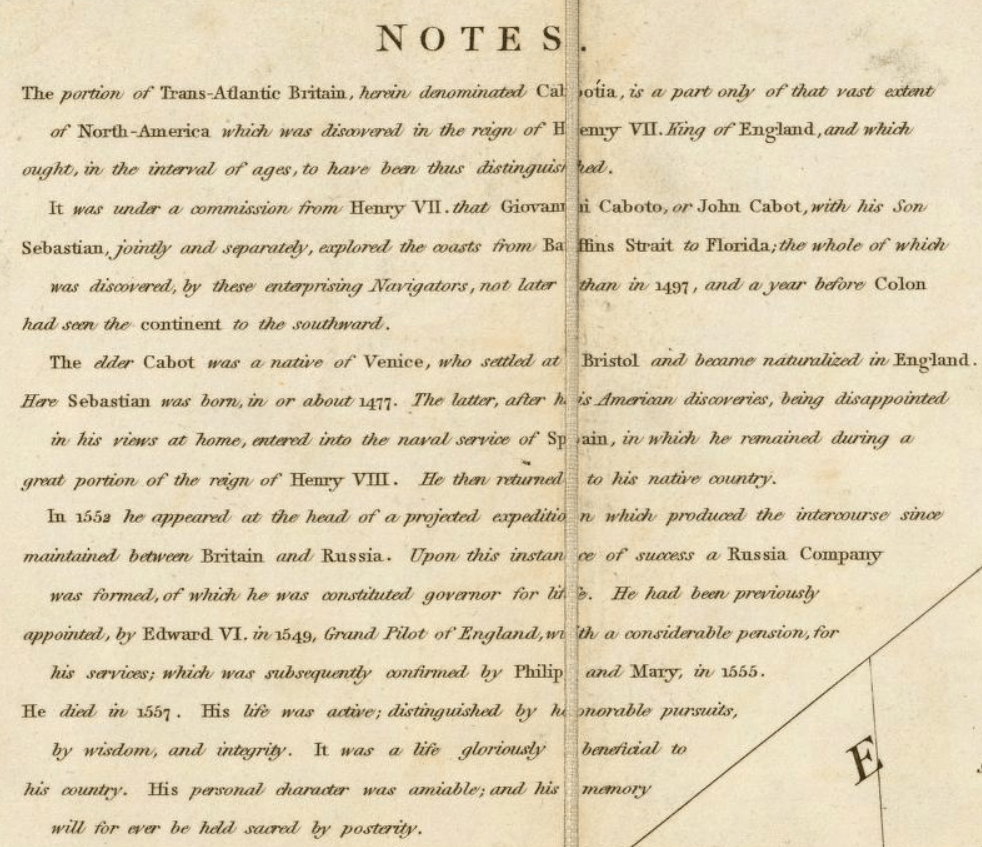 NOTES.
The portion of Trans-Atlantic Britain, herein denominated Cabotia, is a part only of that vast extent
of North-America which was discovered in the reign of Henry VII. King of England, and which
ought, in the interval of ages, to have been thus distinguished.
It was under a commission from Henry VII. that Giovanni Caboto, or John Cabot, with his Son
Sebastian, jointly and separately, explored the coasts from Baffins Strait to Florida; the whole of which
was discovered, by these enterprising Navigators, not later than in 1497, and a year before Colon
had seen the continent to the southward.
The elder Cabot was a native of Venice, who settled at Bristol and became naturalized in England.
Here Sebastian was born, in or about 1477. The latter, after his American discoveries, being disappointed
in his views at home, entered into the naval service of Spain, in which he remained during a
great portion of the reign of Henry VIII. He then returned to his native country.
In 1552 he appeared at the head of a projected expedition which produced the intercourse since
maintained between Britain and Russia. Upon this instance of success a Russia Company
was formed, of which he was constituted governor for life. He had been previously
appointed, by Edward VI. in 1549, Grand Pilot of England, with a considerable pension, for
his services; which was subsequently confirmed by Philip and Mary, in 1555.
He died in 1557. His life was active; distinguished by honorable pursuits,
by wisdom, and integrity. It was a life gloriously beneficial to
his country. His personal character was amiable; and his memory
will for ever be held sacred by posterity.
E